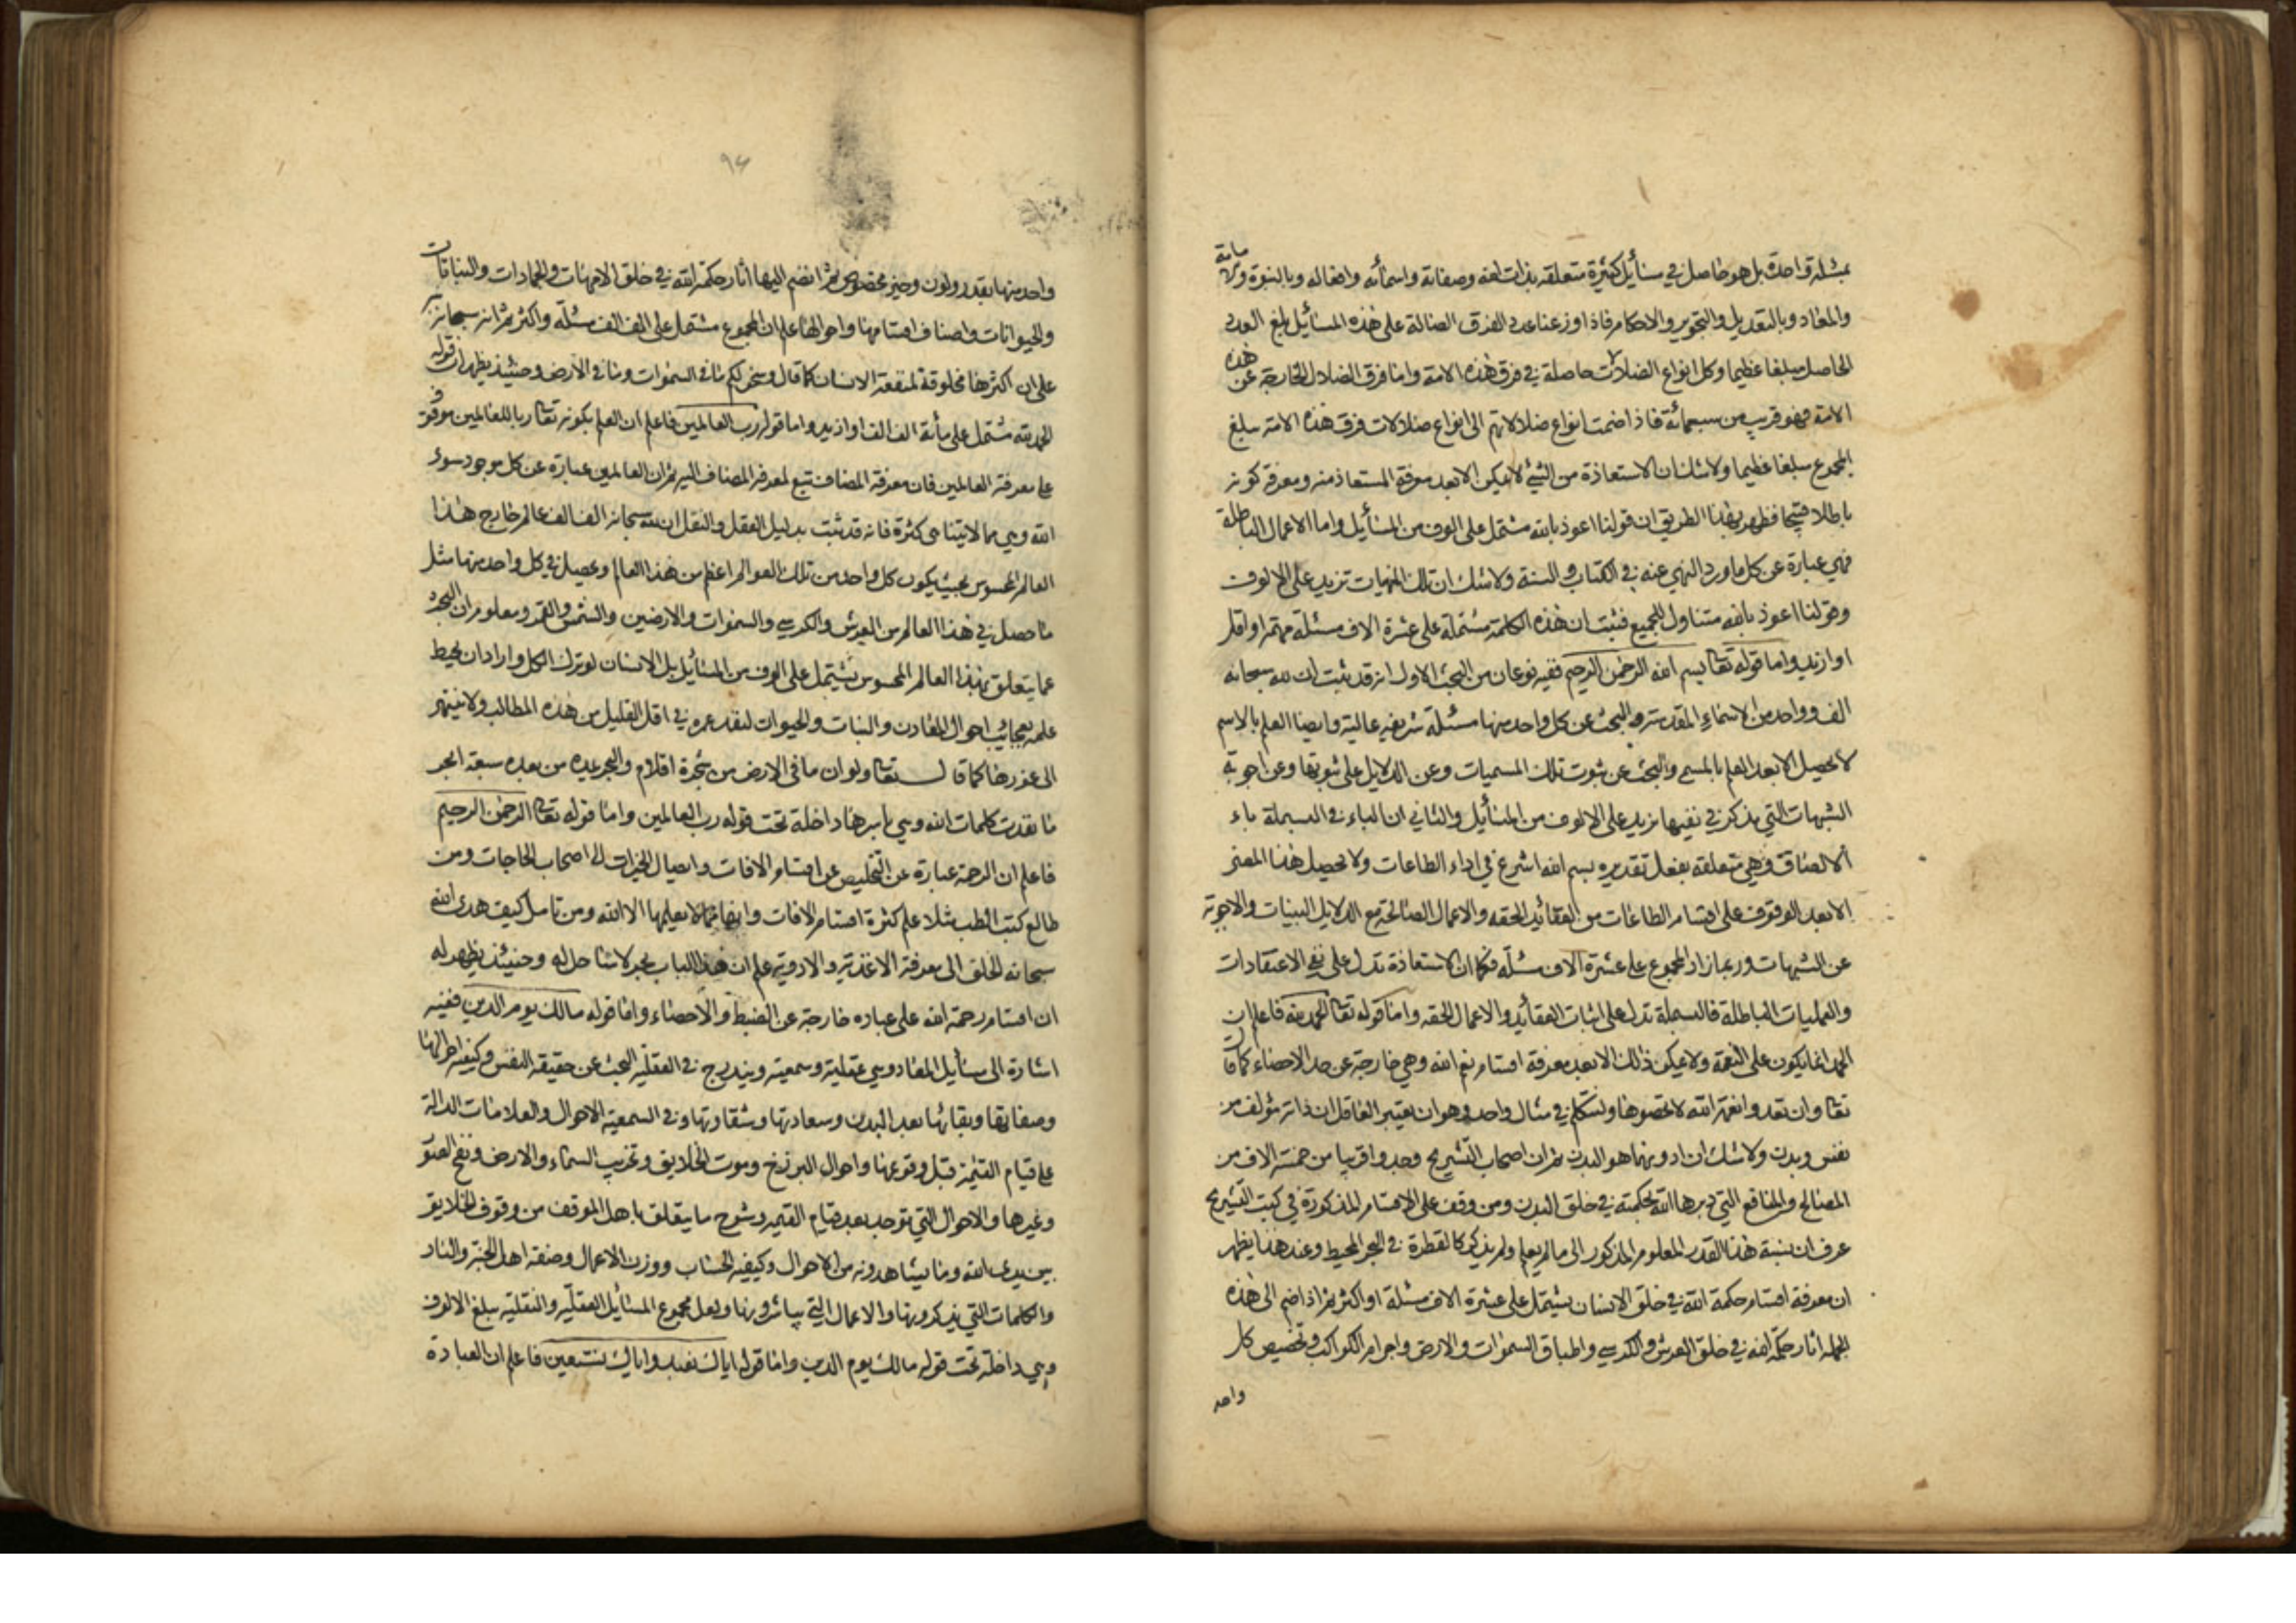 مامة
بمسئلة واحدة بل هو حاصل في مسائل كثيرة متعلقة بذات الله وصفاته واسمائه وافعاله وبالنبوة و
والمعاد وبالتعديل والتجوير والاحكام فاذا وزعنا عدد الفرق الضالة على هذه المسائيل بلغ العدد
الحاصل مبلغا عظيما وكل انواع الضلالات حاصلة في فرق هذه الامة واما فرق الضلال الخارجة عن هذه
الامة فهو قريب من سبعمائة فاذا ضمت انواع ضلالاتهم الى انواع ضلالات فرق هذه الامة بلغ
المجموع مبلغا عظيما ولا شك ان الاستعاذة من الشيء لا يمكن الا بعد معرفة المستعاذ منه ومعرفة كونه
باطلا قبيحا فظهر بهذا الطريق ان قولنا اعوذ بالله مشتمل على الوف من المسائيل واما الاعمال الباطلة
فهي عبارة عن كل ما ورد النهي عنه في الكتاب والسنة ولا شك ان تلك المنهيات تزيد على الالوف
وقولنا اعوذ بالله متناول للجميع فثبت ان هذه الكلمة مشتملة على عشرة الاف مسئلة مهمة او اقل
او ازيد واما قوله تعا بسم الله الرحمن الرحيم ففيه نوعان من البحث الاول انه قد ثبت ان لله سبحانه
الف وواحد من الاسماء المقدسة والبحث عن كل واحد منها مسئلة شريفة عالية وايضا العلم بالاسم
لا يحصل الا بعد العلم بالمسمى والبحث عن ثبوت تلك المسميات وعن الدلايل على ثبوتها وعن اجوبة
الشبهات التي تذكر في نفيها يزيد على الالوف من المسائيل والثاني ان الباء في البسملة باء
الالصاق وهي متعلقة بفعل تقديره بسم الله اشرع في اداء الطاعات ولا يحصل هذا المعنى
الا بعد الوقوف على اقسام الطاعات من العقائد الحقه والاعمال الصالحة مع الدلايل البينات والاجوبة
عن الشبهات وربما زاد المجموع على عشرة الاف مسئلة فكما ان الاستعاذة تدل على نفي الاعتقادات
والعمليات الباطلة فالبسملة تدل على اثبات العقائد والاعمال الحقه واما قوله تعا الحمد لله فاعلم ان
الحمد انما يكون على النعمة ولا يمكن ذلك الا بعد معرفة اقسام نعم الله وهي خارجة عن حد الاحصاء كما قال
تعا وان تعدوا نعمة الله لا تحصوها ولنتكلم في مثال واحد وهو ان يعتبر العاقل ان ذاته مؤلف من
نفس وبدن ولا شك ان ادونهما هو البدن ثم ان اصحاب التشريح وجدوا قريبا من خمسة الاف من
المصالح والمنافع التي دبرها الله بحكمته في خلق البدن ومن وقف على الاقسام المذكورة في كتب التشريح
عرف ان نسبة هذا القدر المعلوم المذكور الى ما لم يعلم ولم يذكر كالقطرة في البحر المحيط وعند هذا يظهر
ان معرفة اقسام حكمة الله في خلق الانسان يشتمل على عشرة الاف مسئلة او اكثر ثم اذا ضم الى هذه
الجملة اثار حكمة الله في خلق العرش والكرسي واطباق السموات والارض واجرام الكواكب وتخصيص كل
واحد
٩٤
واحد منها بقدر ولون وحيز مخصوص ثم انضم اليها اثار حكمة الله في خلق الامهات والجمادات والنباتات
والحيوانات واصناف اقسامها واحوالها علم ان المجموع مشتمل على الف الف مسئلة واكثر ثم انه سبحانه نبه
على ان اكثرها مخلوقة لمنفعة الانسان كما قال وسخر لكم ما في السموات وما في الارض وحينئذ يظهر ان قوله
الحمد لله مشتمل على مأة الف الف او ازيد واما قوله رب العالمين فاعلم ان العلم بكونه تعا ربا للعالمين موقوف
على معرفة العالمين فان معرفة المضاف تتبع لمعرفة المضاف اليه ثم ان العالمين عبارة عن كل موجود سوى
الله وهي مما لا يتناهى كثرة فانه قد ثبت بدليل العقل والنقل ان لله سبحانه الف الف عالم خارج هذا
العالم المحسوس بحيث يكون كل واحد من تلك العوالم اعظم من هذا العالم ويحصل في كل واحد منها مثل
ما حصل في هذا العالم من العرش والكرسي والسموات والارضين والشمس والقمر ومعلوم ان البحث
عما يتعلق بهذا العالم المحسوس يشتمل على الوف من المسائيل بل الانسان لو ترك الكل واراد ان يحيط
علمه بعجائب احوال المعادن والنبات والحيوان لنفد عمره في اقل القليل من هذه المطالب ولا ينتهى
الى غورها كما قال تعا ولو ان ما في الارض من شجرة اقلام والبحر يمده من بعده سبعة ابحر
ما نفدت كلمات الله وهي باسرها داخلة تحت قوله رب العالمين واما قوله تعا الرحمن الرحيم
فاعلم ان الرحمة عبارة عن التخليص عن اقسام الافات وايصال الخيرات الى اصحاب الحاجات ومن
طالع كتب الطب مثلا علم كثرة اقسام الافات وانها مما لا يعلمها الا الله ومن تامل كيف هدى الله
سبحانه الخلق الى معرفة الاغذية والادوية علم ان هذا الباب بحر لا ساحل له وحينئذ يظهر له
ان اقسام رحمة الله على عباده خارجة عن الضبط والاحصاء واما قوله مالك يوم الدين ففيه
اشارة الى مسائيل المعاد وهي عقلية وسمعية ويندرج في العقلية البحث عن حقيقة النفس وكيفية احوالها
وصفاتها وبقائها بعد البدن وسعادتها وشقاوتها وفي السمعية الاحوال والعلامات الدالة
على قيام القيمة قبل وقوعها واحوال البرزخ وموت الخلايق وتخريب السماء والارض ونفخ الصور
وغيرها والاحوال التي توجد بعد قيام القيمة وشرح ما يتعلق باهل الموقف من وقوف الخلايق
بين يدى الله وما يشاهدونه من الاحوال وكيفية الحساب ووزن الاعمال وصفة اهل الجنة والنار
والكلمات التي يذكرونها والاعمال التي يباشرونها ولعل مجموع المسائيل العقلية والنقلية يبلغ الالوف
وهي داخلة تحت قوله مالك يوم الدين واما قوله اياك نعبد واياك نستعين فاعلم ان العبادة